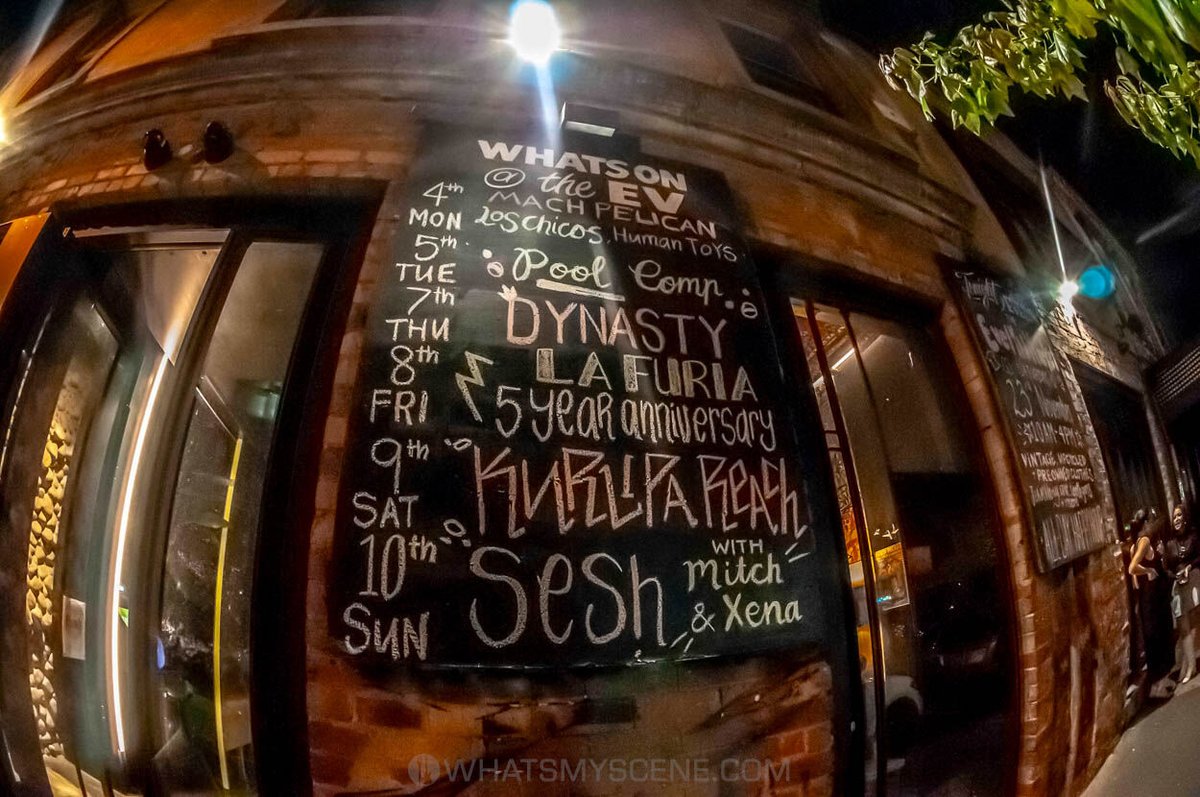 WHATS ON
@ the EV
4th MACH PELICAN
MON Los Chicos, Human Toys
5th
TUE Pool Comp
7th
THU DYNASTY
8th LA FURIA
FRI 5 year anniversary
9th
SAT KURILPA REACH
10th Sesh WITH Mitch
SUN & Xena
Tonight
VINTAGE, UPCYCLED
WHATSMYSCENE.COM